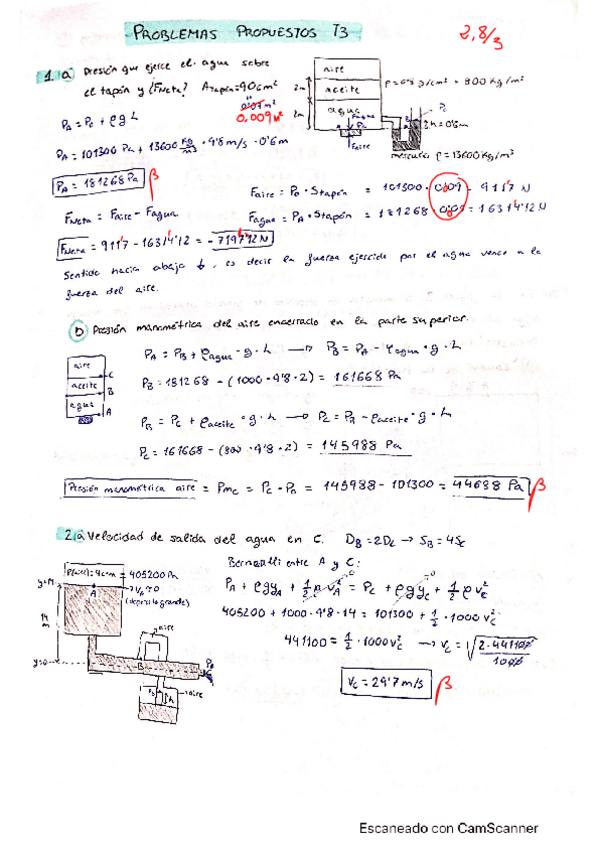 PROBLEMAS PROPUESTOS T3
2,8/3
1. a) Presión que ejerce el agua sobre
el tapón y ¿FNeta? Atapón=90cm²
0'09m²
0,009m²
PA = PC + ρgh
PA = 101300 Pa + 13600 kg/m³ · 9'8 m/s · 0'6m
PA = 181268 Pa B
aire
aceite
agua
2m
2m
ρ=0'8 g/cm³ = 800 Kg/m³
h=0'6m
Faire
mercurio ρ=13600Kg/m³
Faire = Pa · Stapón = 101300 · 0,09 = 911'7 N
FNeta = Faire - Fagua
Fagua = PA · Stapón = 181268 · 0'09 = 16314'12 N
FNeta = 911'7 - 16314'12 = -7197'12 N
Sentido hacia abajo ↓, es decir la fuerza ejercida por el agua vence a la
fuerza del aire.
b) Presión manométrica del aire encerrado en la parte superior.
aire
aceite
agua
C
B
A
PA = PB + ρagua · g · h → PB = PA - ρagua · g · h
PB = 181268 - (1000 · 9'8 · 2) = 161668 Pa
PB = PC + ρaceite · g · h → PC = PA - ρaceite · g · h
PC = 161668 - (800 · 9'8 · 2) = 145988 Pa
Presión manométrica aire = PmC = PC - Pa = 145988 - 101300 = 44688 Pa B
2. a) Velocidad de salida del agua en C. DB = 2DC → SB = 4SC
= 405200 Pa
A
vA≈0
(depósito grande)
14 m
y=0
aire
B
aire
h
Bernoulli entre A y C:
PA + ρgyA + ½ρvA² = PC + ρgyC + ½ρvC²
405200 + 1000 · 9'8 · 14 = 101300 + ½ · 1000vC²
441100 = ½ · 1000vC² → vC = √(2·441100/1000)
vC = 29'7 m/s B
Escaneado con CamScanner